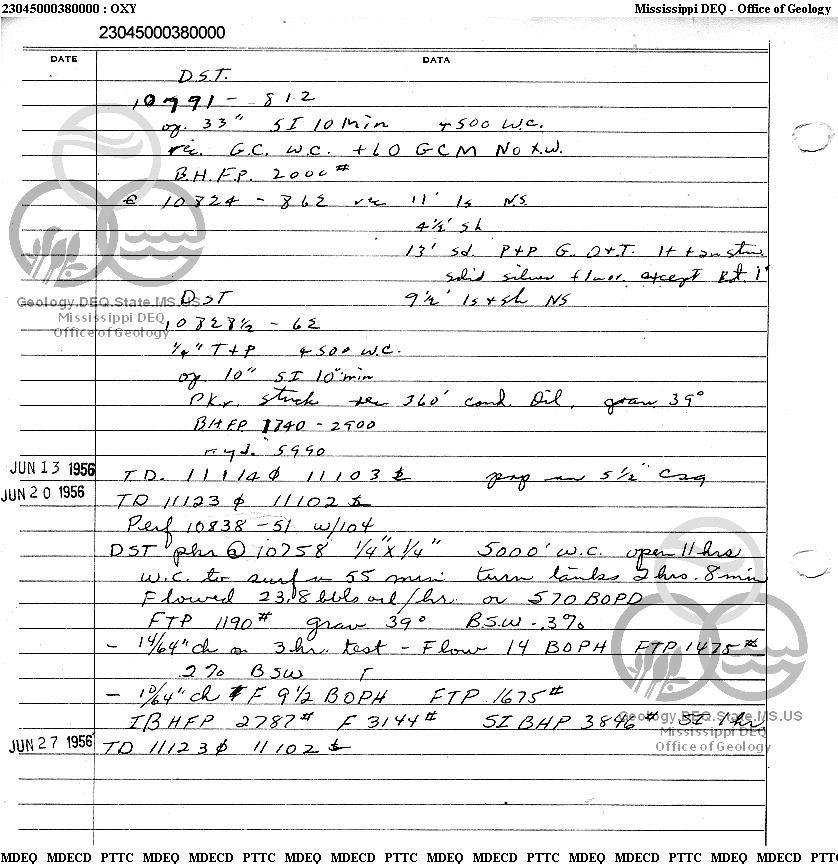 23045000380000 : OXY Mississippi DEQ - Office of Geology
23045000380000
DATE DATA
D.S.T.
10791 - 812
op. 33" SI 10 Min 4500 W.C.
rec. G.C. W.C. + 60 GCM No X.W.
B.H.F.P. 2000#
10824 - 862 rec 11' ls N.S.
4½' sh
13' sd. P+P G. O+T. lt
solid silver fluor. except Bot. 1'
DST 9½' ls + sh NS
10828½ - 62
¼" T+P 4500 W.C.
op. 10" SI 10" min
Pkr. stuck rec 360' cond. Oil, grav. 39°
BHFP 1340 - 2900
hyd. 5990
JUN 13 1956 T.D. 11114 φ 11103 prep run 5½" Csg
JUN 20 1956 TD 11123 φ 11102
Perf 10838 - 51 w/104
DST pkr @ 10758 ¼" X ¼" 5000' w.c. open 11 hrs
w.c. to surf in 55 min turn tanks 2 hrs. 8 min
Flowed 23.8 bbls oil/hr. or 570 BOPD
FTP 1190# grav 39° B.S.W - .3%
- 14/64" ch on 3 hr. test - Flow 14 BOPH FTP 1475#
.2% BSW
- 10/64" ch F 9½ BOPH FTP 1675#
IBHFP 2787# F 3144# SI BHP 3846# SI 1 hr
JUN 27 1956 TD 11123 φ 11102
Geology.DEQ.State.MS.US
Mississippi DEQ
Office of Geology
Geology.DEQ.State.MS.US
Mississippi DEQ
Office of Geology
MDEQ MDECD PTTC MDEQ MDECD PTTC MDEQ MDECD PTTC MDEQ MDECD PTTC MDEQ MDECD PTTC MDEQ MDECD PTTC